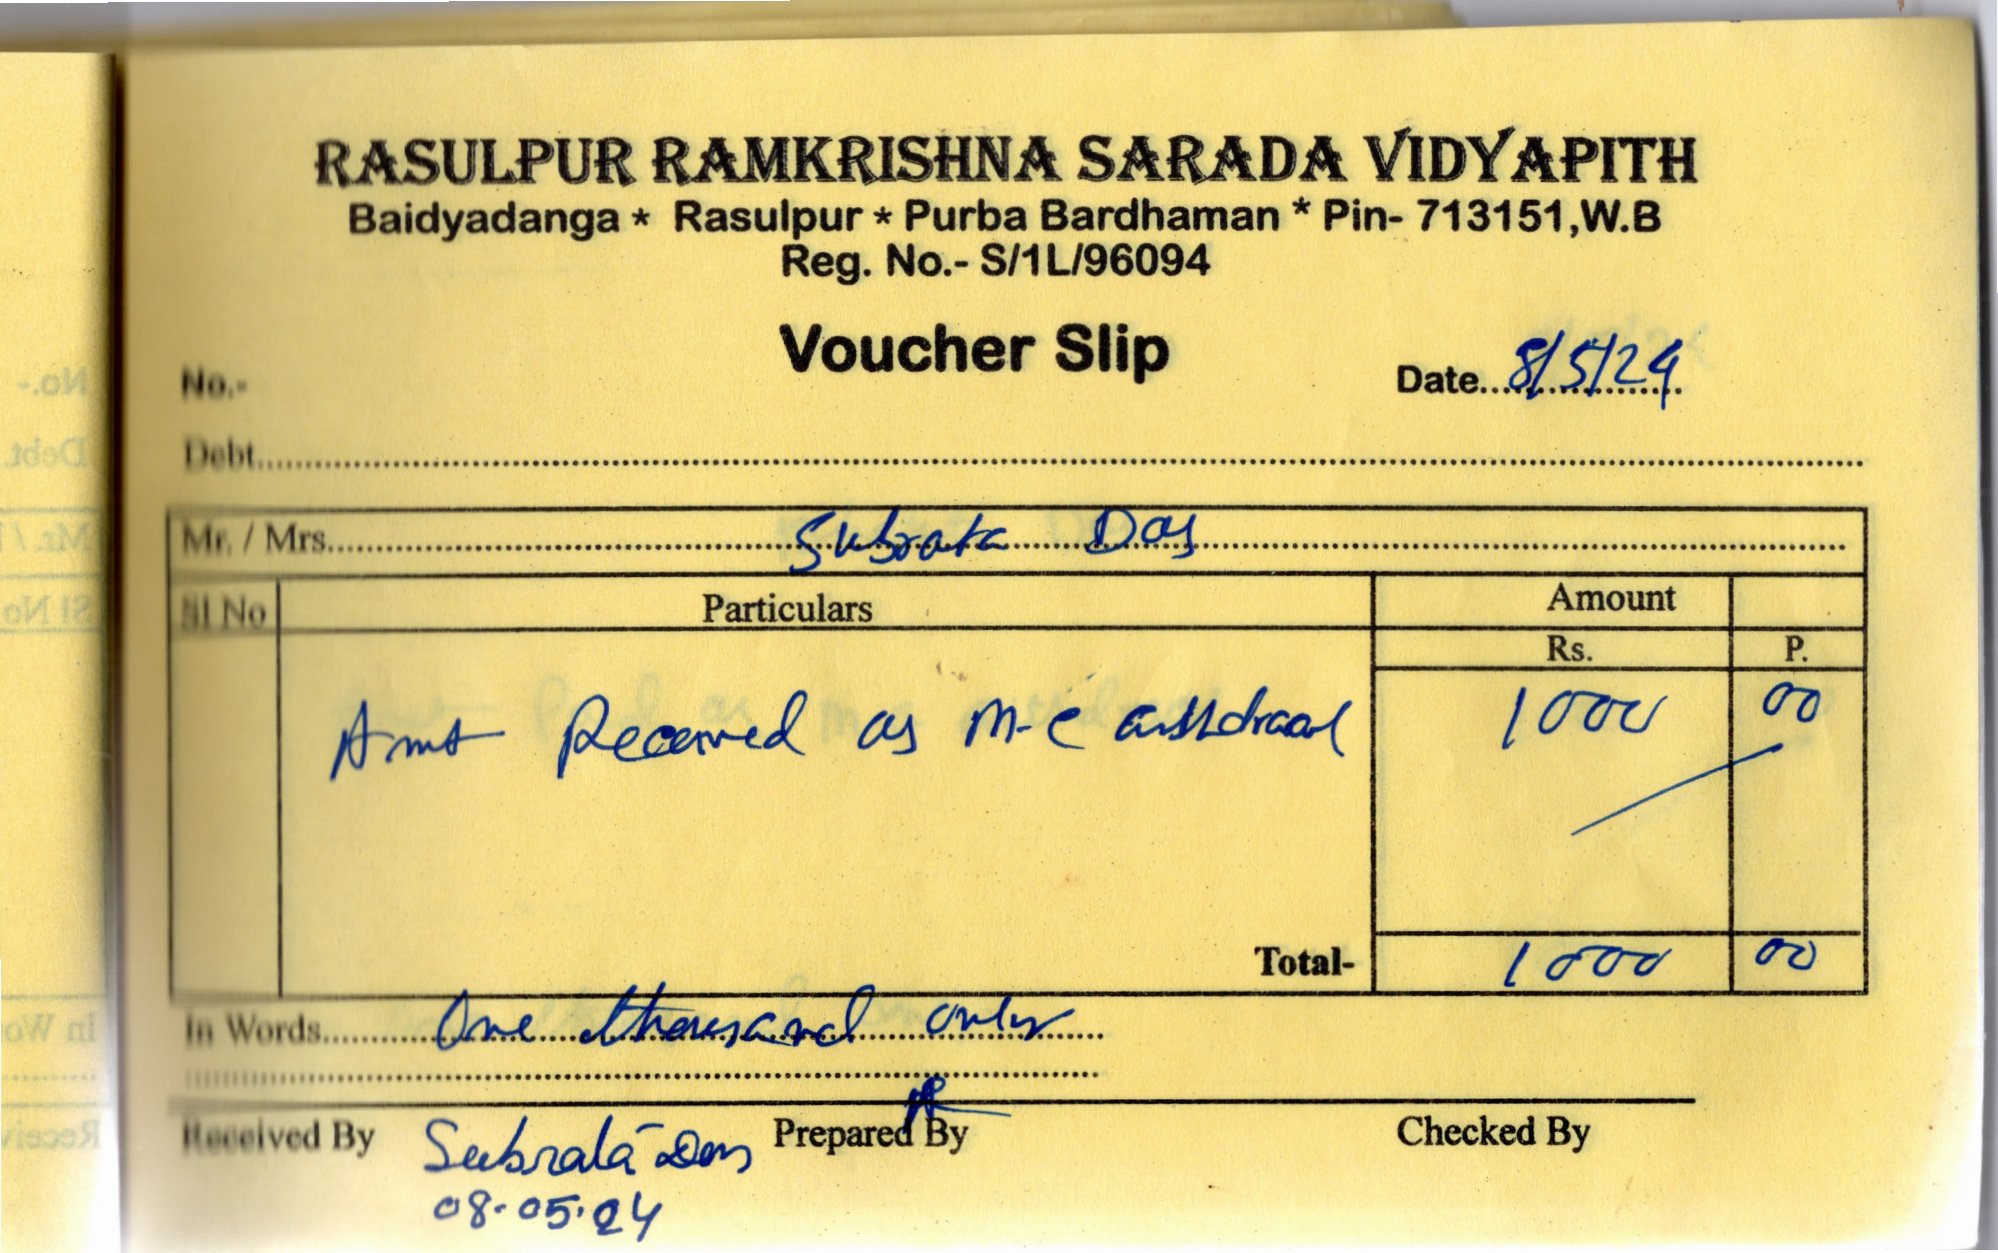 RASULPUR RAMKRISHNA SARADA VIDYAPITH
Baidyadanga * Rasulpur * Purba Bardhaman * Pin- 713151,W.B
Reg. No.- S/1L/96094
Voucher Slip
No.-
Date...8/5/24
Debt
Mr. / Mrs. Subrata Das
Sl No Particulars Amount
Rs. P.
Amt Received as M-C withdraal 1000 00
Total- 1000 00
In Words One thousand only
Received By Subrata Das Prepared By Checked By
08.05.24